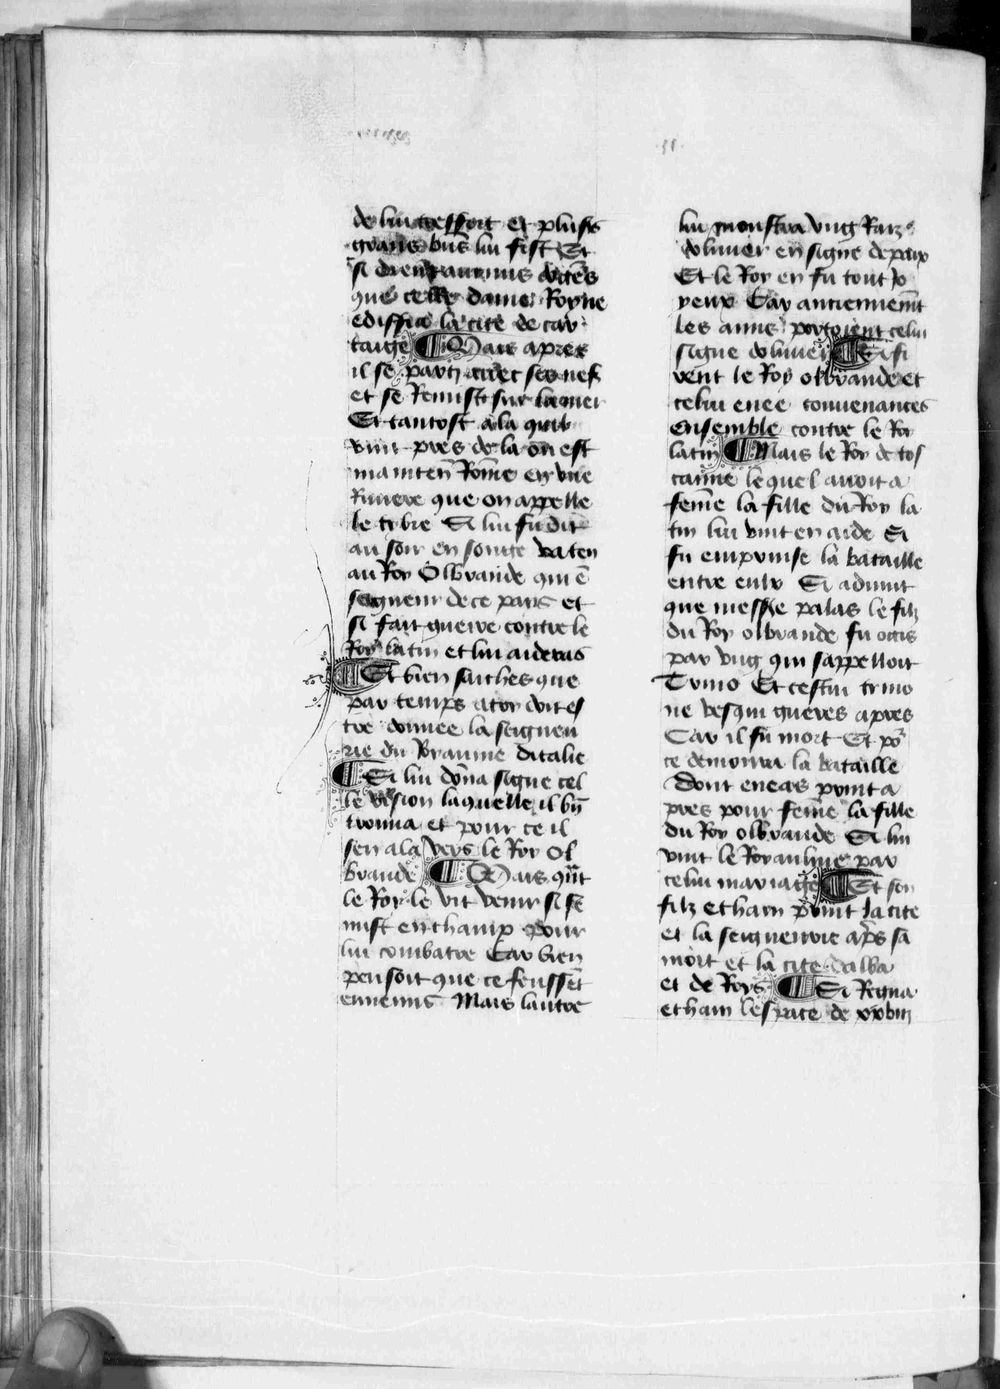 de lui tressort et pluss
grans bns lui fist Et
si dient aucuns actes
que celle dame Royne
ediffia la cite de car
taige ¶ Mais apres
il se party avec ses nefs
et se Remist sur la mer
Et tantost a la quil
vint pres de la ou est
mainten Rome en une
Riviere que on appelle
le tybre Si lui fu dit
au soir en songe va ten
au Roy Olbrande qui e
seigneur de ce pais et
si fait guerre contre le
Roy latin et lui aideras
¶ Et bien saiches que
par temps a toy doit es
tre donnee la seigneu
rie du Royaume ditalie
¶ Si lui dona signe cel
le vision laquelle il bn
trouva et pour ce il
sen ala vers le Roy Ol
brande ¶ Mais qnt
le Roy le vit venir si se
mist en champ pour
lui combatre Car bien
pensoit que ce feussent
ennemis Mais lautre
lui monstra ung Rain
dolivier en signe de paix
Et le Roy en fu tout io
yeux Car anciennemt
les anns portoient celui
signe dolivier ¶ Si fi
rent le Roy olbrande et
celui enee convenances
ensemble contre le Roy
latin ¶ Mais le Roy de tos
canne lequel avoit a
feme la fille du Roy la
tin lui vint en aide Si
fu emprinse la bataille
entre eulx Si advint
que messire palas le filz
du Roy olbrande fu ocis
par ung qui sappelloit
Turno Et cestui turno
ne vesqui gueres apres
Car il fu mort Et po
ce demoura la bataille
Dont eneas print a
pres pour feme la fille
du Roy olbrande Si lui
vint le Royaulme par
celui mariaige ¶ Et son
filz etham print la cite
et la seigneurie aps sa
mort et la cite dalba
et de Roys ¶ Si Regna
etham lespace de xxviij